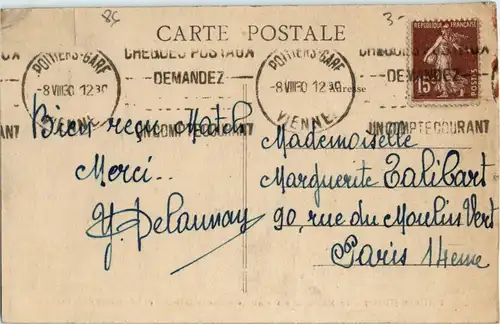 8C
3-
CARTE POSTALE
POITIERS-GARE
8 VIII30 12 30
VIENNE
CHEQUES POSTAUX
DEMANDEZ
UN COMPTE COURANT
POITIERS-GARE
-8 VIII30 12 30
VIENNE
CHEQUES POSTAUX
DEMANDEZ
UN COMPTE COURANT
RÉPUBLIQUE FRANÇAISE
15
POSTES
Adresse
Bien reçu
Merci..
Y. Delaunay
Mademoiselle
Marguerite Talibart
90, rue du Moulin Vert
Paris 14eme